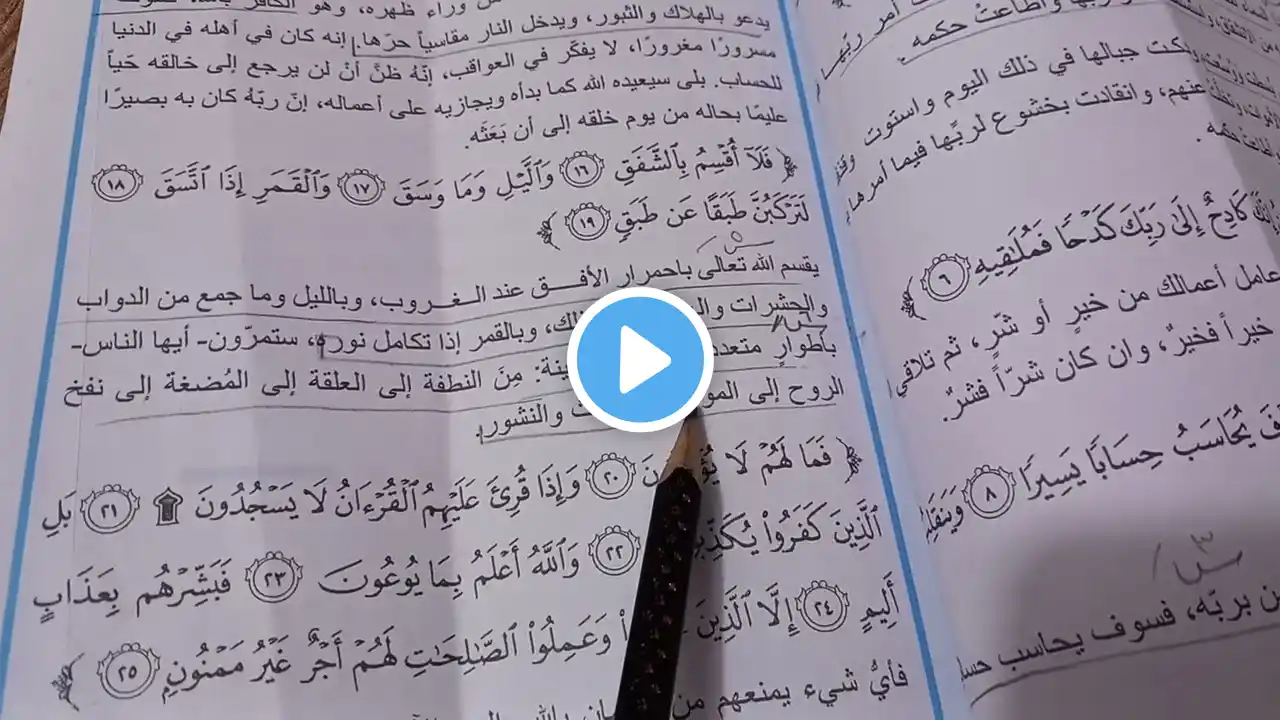 وراء ظهره، وهو الكافر بالله، فسوف
يدعو بالهلاك والثبور، ويدخل النار مقاسياً حرّها، إنه كان في أهله في الدنيا
مسرورًا مغرورًا، لا يفكّر في العواقب، إنّهُ ظنَّ أنْ لن يرجع إلى خالقه حَياً
للحساب. بلى سيعيده الله كما بدأه ويجازيه على أعماله، إنّ ربّهُ كان به بصيرًا
عليمًا بحاله من يوم خلقه إلى أن بَعَثَه.
﴿ فَلَآ أُقۡسِمُ بِٱلشَّفَقِ ١٦ وَٱلَّيۡلِ وَمَا وَسَقَ ١٧ وَٱلۡقَمَرِ إِذَا ٱتَّسَقَ ١٨
لَتَرۡكَبُنَّ طَبَقًا عَن طَبَقٖ ١٩ ﴾
س
يقسم الله تعالى باحمرار الأفق عند الغروب، وبالليل وما جمع من الدواب
والحشرات وال لك، وبالقمر إذا تكامل نوره، ستمرّون- أيها الناس-
بأطوارٍ متعدد ينة: مِنَ النطفة إلى العلقة إلى المُضغة إلى نفخ
الروح إلى المو ث والنشور.
﴿ فَمَا لَهُمۡ لَا يُؤۡ نَ ٢٠ وَإِذَا قُرِئَ عَلَيۡهِمُ ٱلۡقُرۡءَانُ لَا يَسۡجُدُونَ ۩ ٢١ بَلِ
ٱلَّذِينَ كَفَرُواْ يُكَذِّبُ ٢٢ وَٱللَّهُ أَعۡلَمُ بِمَا يُوعُونَ ٢٣ فَبَشِّرۡهُم بِعَذَابٍ
أَلِيمٍ ٢٤ إِلَّا ٱلَّذِينَ وَعَمِلُواْ ٱلصَّٰلِحَٰتِ لَهُمۡ أَجۡرٌ غَيۡرُ مَمۡنُونِۭ ٢٥ ﴾
فأيُّ شيء يمنعهم من
أمر ربّها
ربّها وأطاعتْ حكمه
كت جبالها في ذلك اليوم واستوت
عنهم، وانقادت بخشوع لربّها فيما أمرها
إِنَّكَ كَادِحٌ إِلَىٰ رَبِّكَ كَدۡحٗا فَمُلَٰقِيهِ ٦ ﴾
عامل أعمالك من خيرٍ أو شرّ، ثم تلاقي
خيراً فخيرٌ، وان كان شرّاً فشرٌ.
فَ يُحَاسَبُ حِسَابٗا يَسِيرٗا ٨ وَيَنقَلِبُ
س٣
ن بربّه، فسوف يحاسب